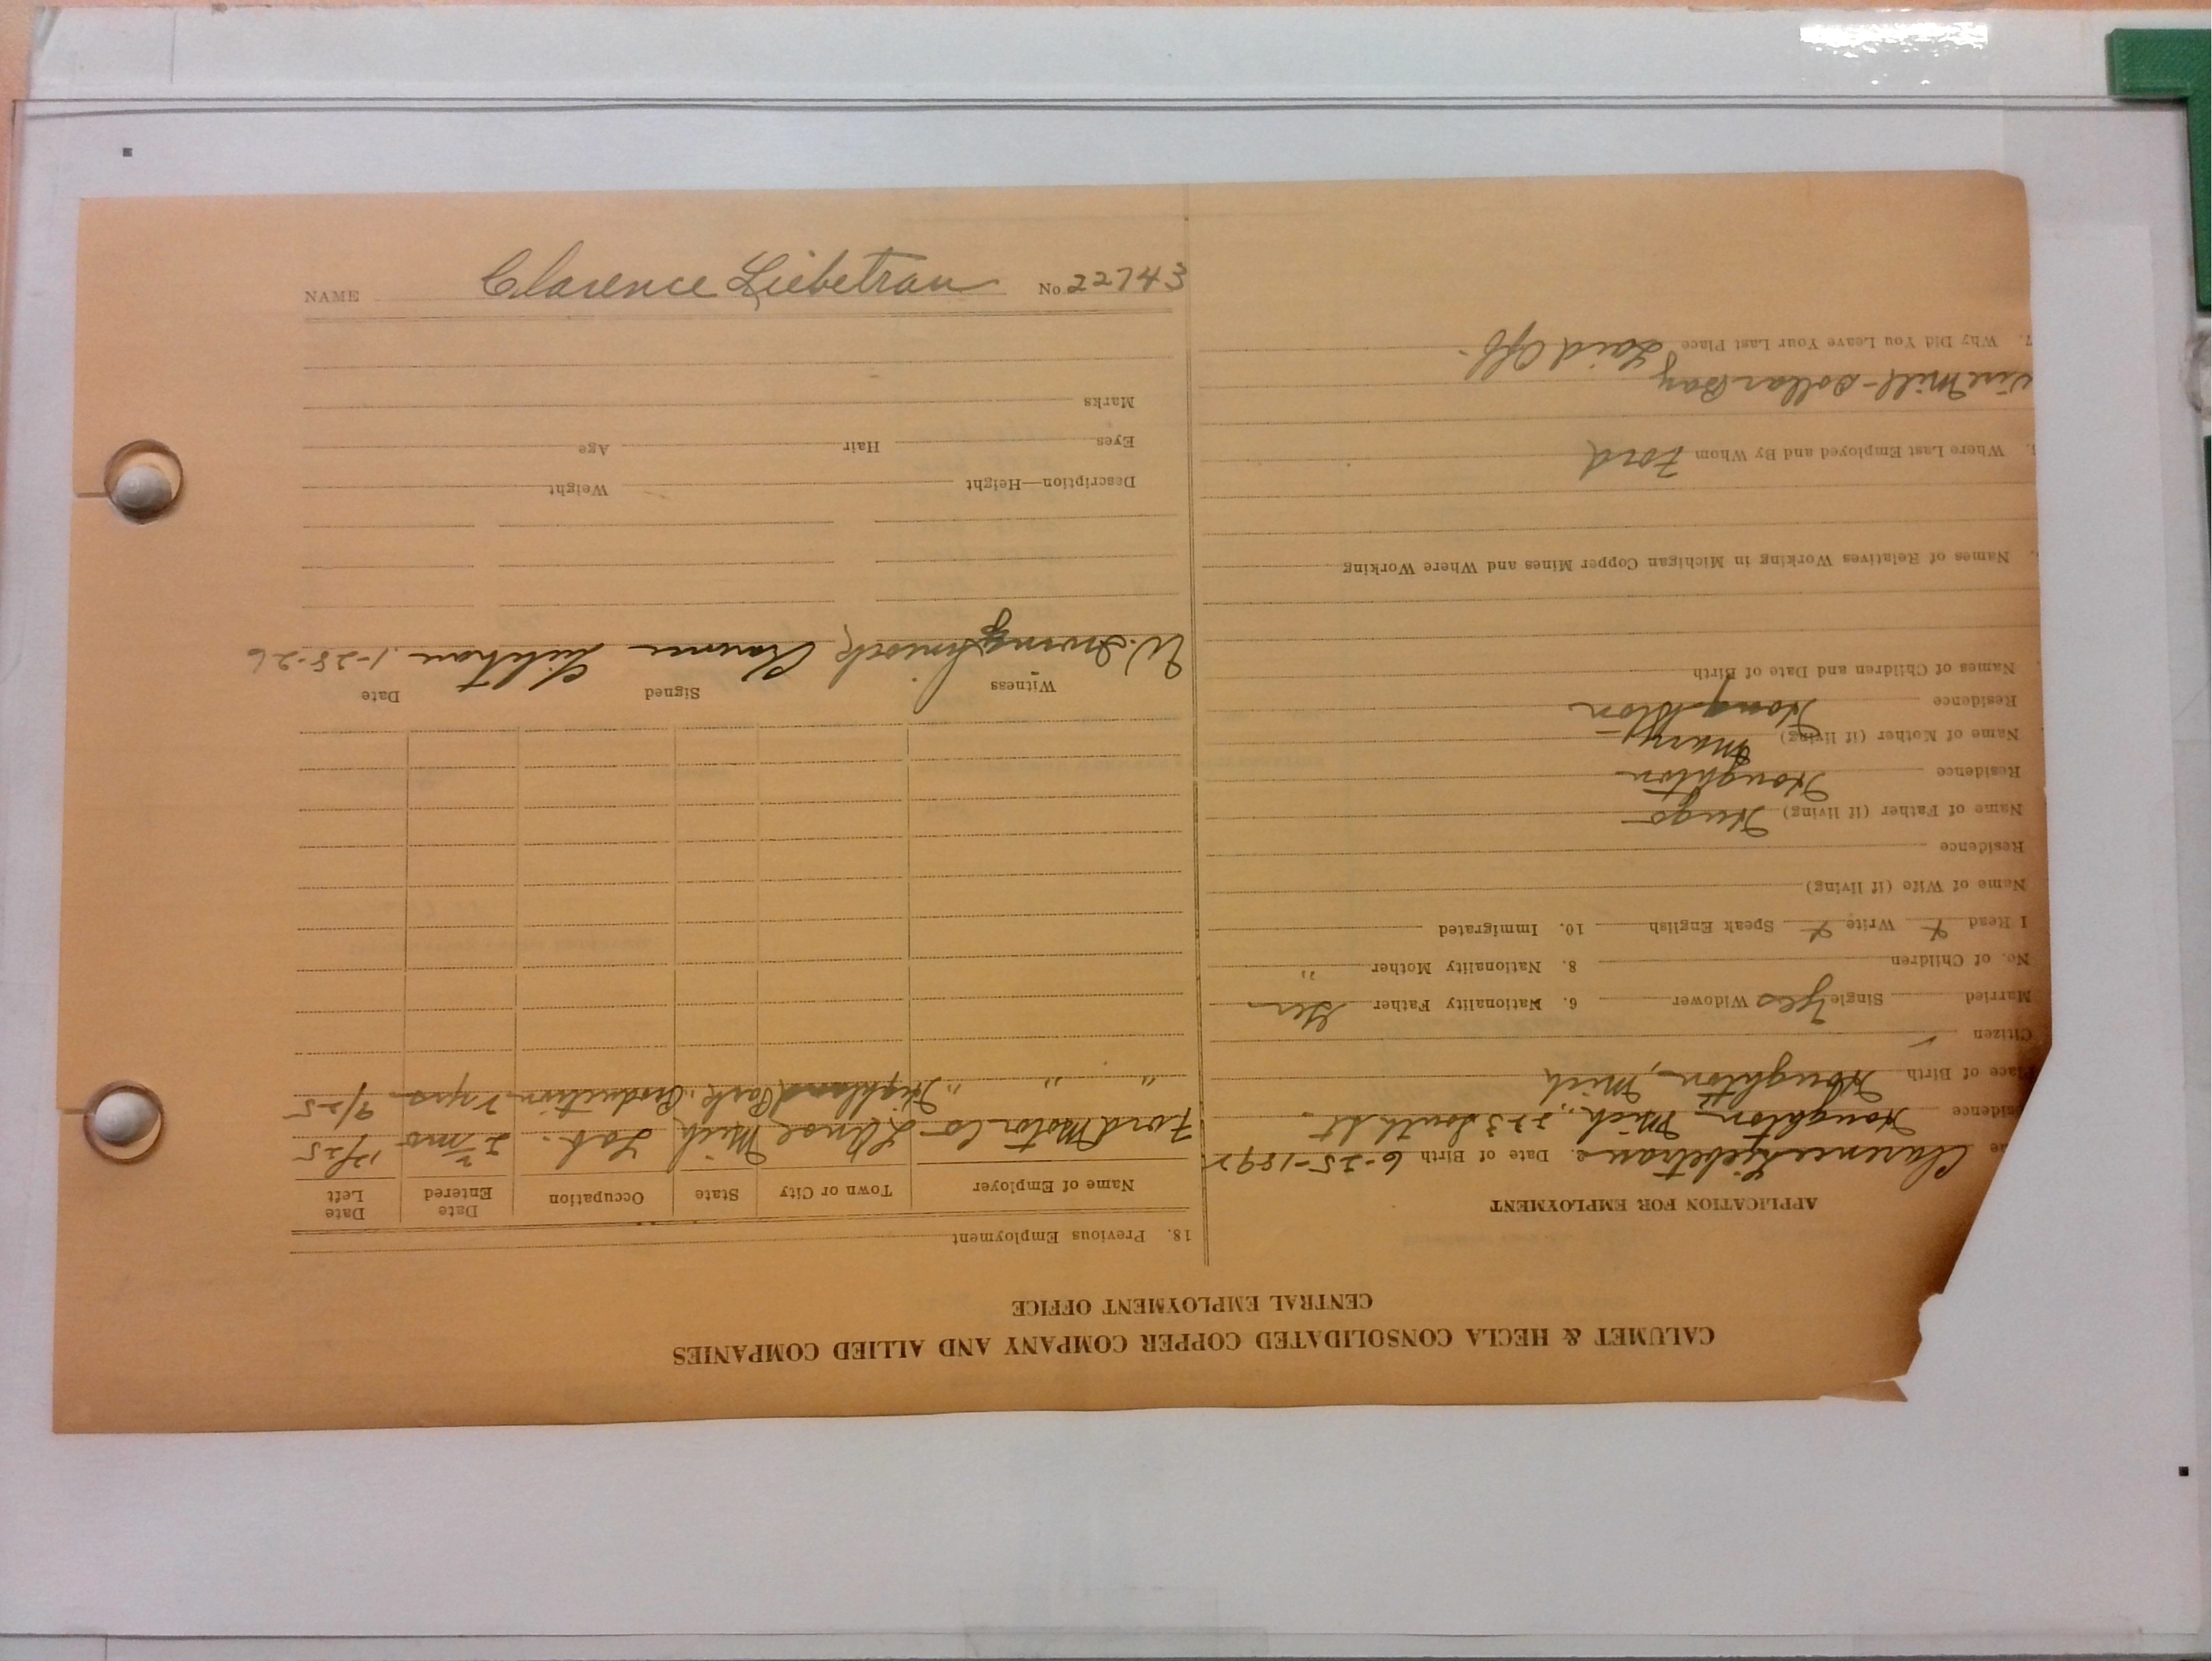 NAME Clarence Liebetrau No 22743
CALUMET & HECLA CONSOLIDATED COPPER COMPANY AND ALLIED COMPANIES
CENTRAL EMPLOYMENT OFFICE
APPLICATION FOR EMPLOYMENT
Clarence Liebetrau 2. Date of Birth 6-25-189
Houghton Mich., South St.
Place of Birth Houghton, Mich
Citizen
Married Single Yes Widower 6. Nationality Father Ger
No. of Children 8. Nationality Mother "
I Read Write Speak English 10. Immigrated
Name of Wife (if living)
Residence
Name of Father (if living) Hugo
Residence Houghton
Name of Mother (if living) Mary
Residence Houghton
Names of Children and Date of Birth
Names of Relatives Working in Michigan Copper Mines and Where Working
Where Last Employed and By Whom Ford
Mill - Dollar Bay
7. Why Did You Leave Your Last Place Laid Off.
18. Previous Employment
Name of Employer Town or City State Occupation Date Entered Date Left
Ford Motor Co L'Anse Mich Lab. 2 mo 12/25
" " " Highland Park " Production 2 yrs 9/25
Witness Signed Date
W. Clarence Liebetrau 1-28-26
Description—Height Weight
Eyes Hair Age
Marks